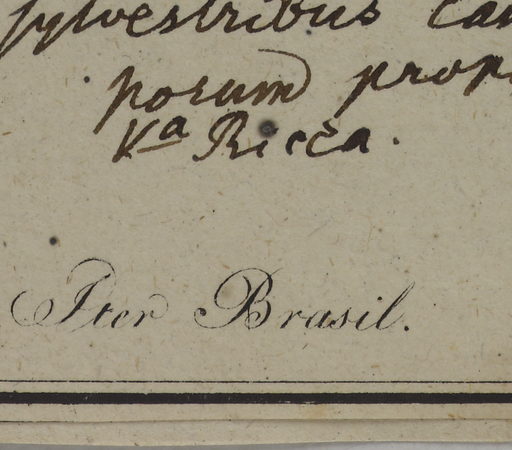 sylvestribus cam
porum prope
Va Ricca.
Iter Brasil.